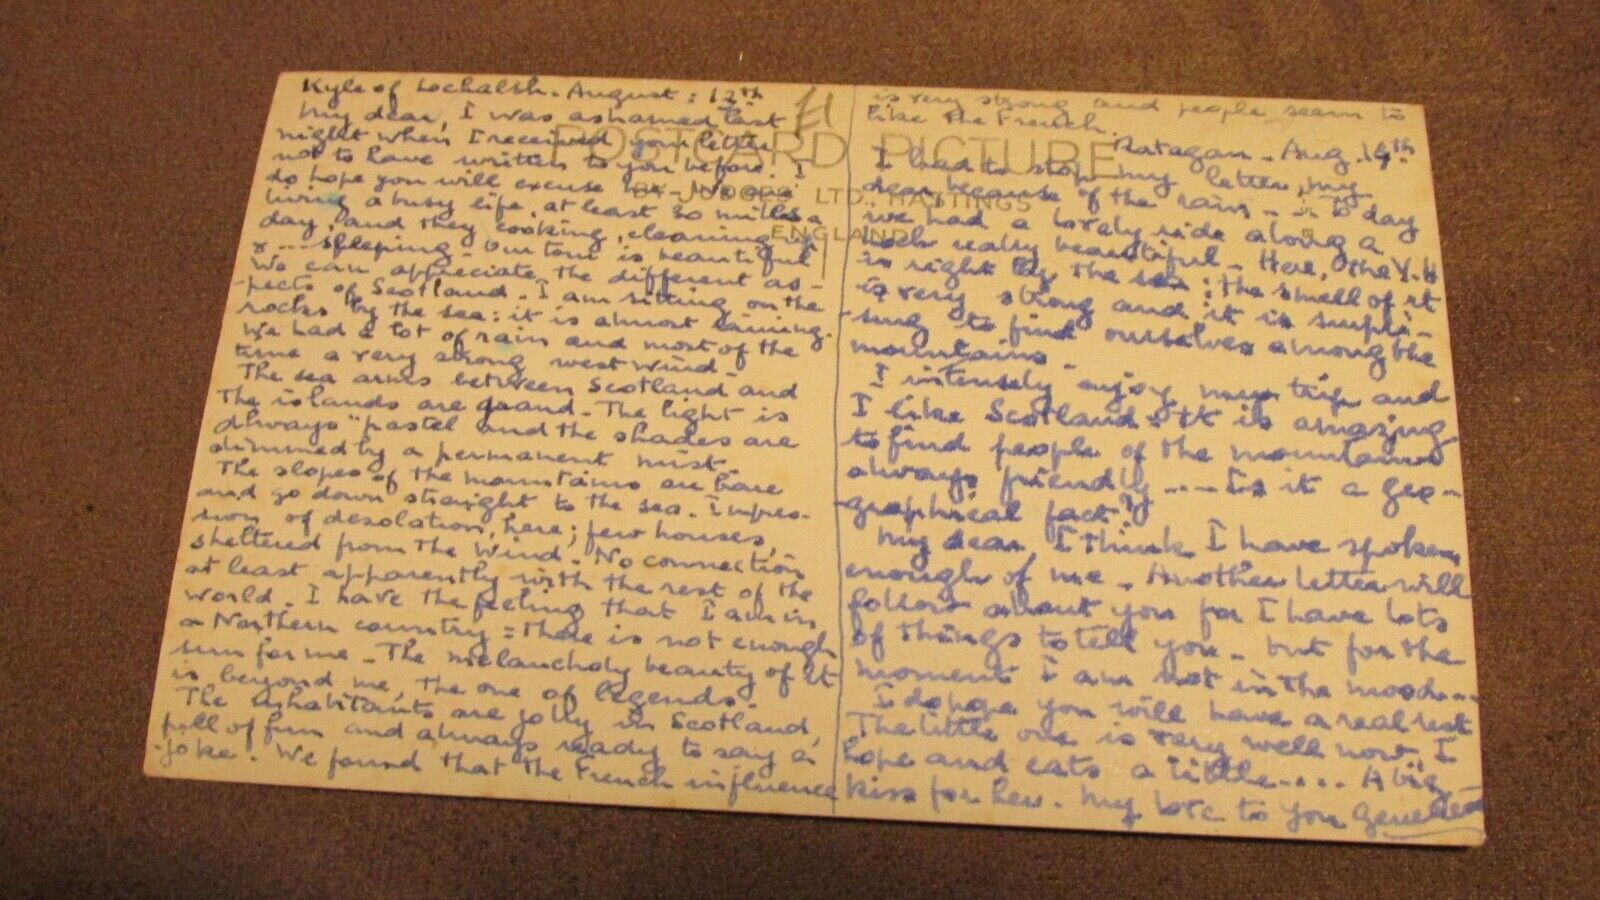 Kyle of Lochalsh. August: 12th
My dear, I was ashamed last
night when I received your letter
not to have written to you before. I
do hope you will excuse me. We are
living a busy life, at least 30 miles a
day, and they cooking, cleaning up
x... sleeping - our tour is beautiful
We can appreciate the different as-
-pects of Scotland. I am sitting on the
rocks by the sea: it is almost raining.
We had a lot of rain and most of the
time a very strong west wind -
The sea arms between Scotland and
The islands are grand - The light is
always "pastel and the shades are
dimmed by a permanent mist.
The slopes of the mountains are bare
and go down straight to the sea. Impres-
sion of desolation, here; few houses,
sheltered from The wind - No connection
at least apparently with the rest of the
world. I have the feeling that I am in
a Northern country = there is not enough
sun for me - The melancholy beauty of it
is beyond me, the one of legends.
The inhabitants are jolly in Scotland,
full of fun and always ready to say a
joke. We found that the French influence
is very strong and people seem to
like The French.
Ratagan - Aug. 14th
I had to stop my letter, my
dear, because of the rain - To day
we had a lovely ride along a
loch really beautiful - Here, the Y.H
is right by the sea: the smell of it
is very strong and it is surpri-
-sing to find ourselves among the
mountains -
I intensely enjoy my trip and
I like Scotland. It is amazing
to find people of the mountains
always friendly .... Is it a geo-
-graphical fact?
My dear, I think I have spoken
enough of me - Another letter will
follow about you for I have lots
of things to tell you - but for the
moment I am not in the mood...
I do hope you will have a real rest
The little one is very well now, I
hope and eats a little.... A big
kiss for her. My love to you
POSTCARD PICTURE
BY JUDGES LTD., HASTINGS
ENGLAND